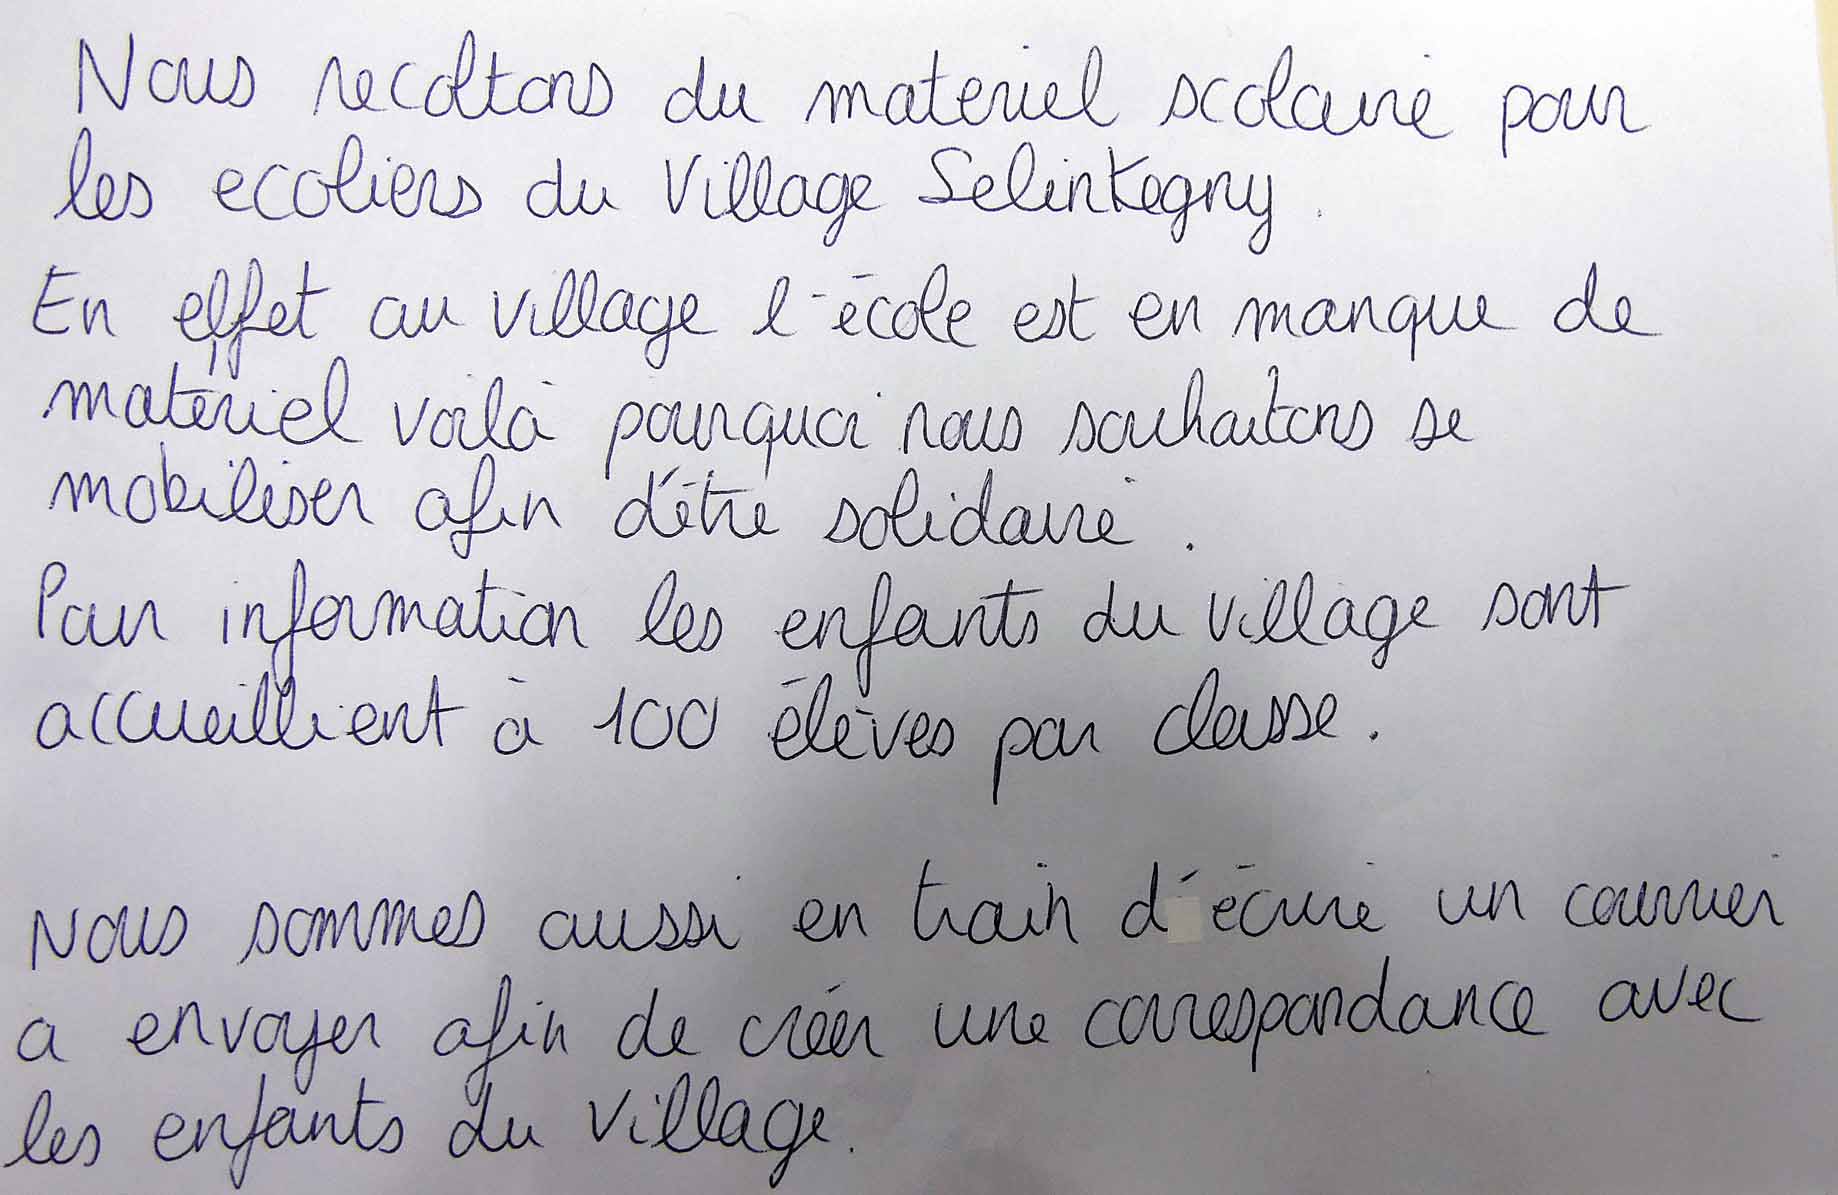 Nous recoltons du materiel scolaire pour
les ecoliers du Village Selinkegny.
En effet au village l'école est en manque de
matériel voilà pourquoi nous souhaitons se
mobiliser afin d'être solidaire.
Pour information les enfants du village sont
accueillient à 100 élèves par classe.
Nous sommes aussi en train d'écrire un courrier
a envoyer afin de créer une correspondance avec
les enfants du village.